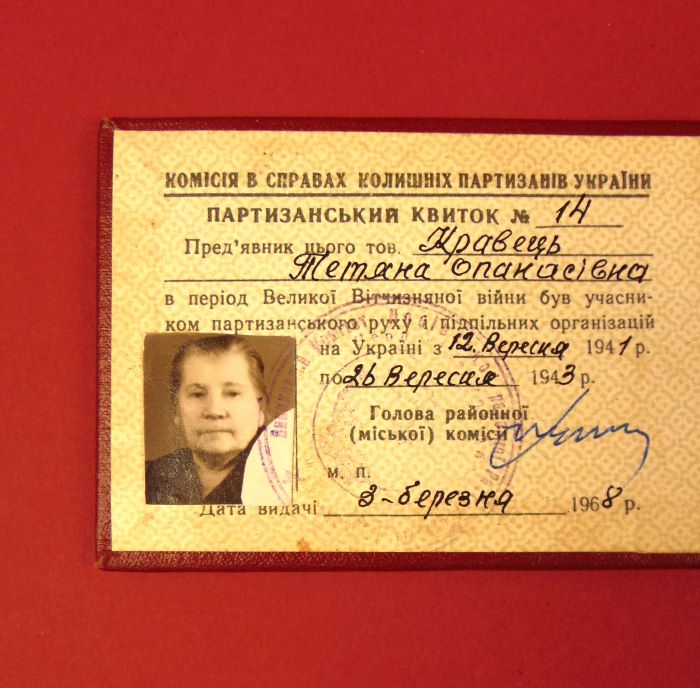 КОМІСІЯ В СПРАВАХ КОЛИШНІХ ПАРТИЗАНІВ УКРАЇНИ
ПАРТИЗАНСЬКИЙ КВИТОК № 14
Пред'явник цього тов. Кравець
Тетяна Опанасівна
в період Великої Вітчизняної війни був учасни-
ком партизанського руху і/підпільних організацій
на Україні з 12. Вересня 1941 р.
по 26 Вересня 1943 р.
Голова районної
(міської) комісії
м. п.
Дата видачі 3-березня 1968 р.